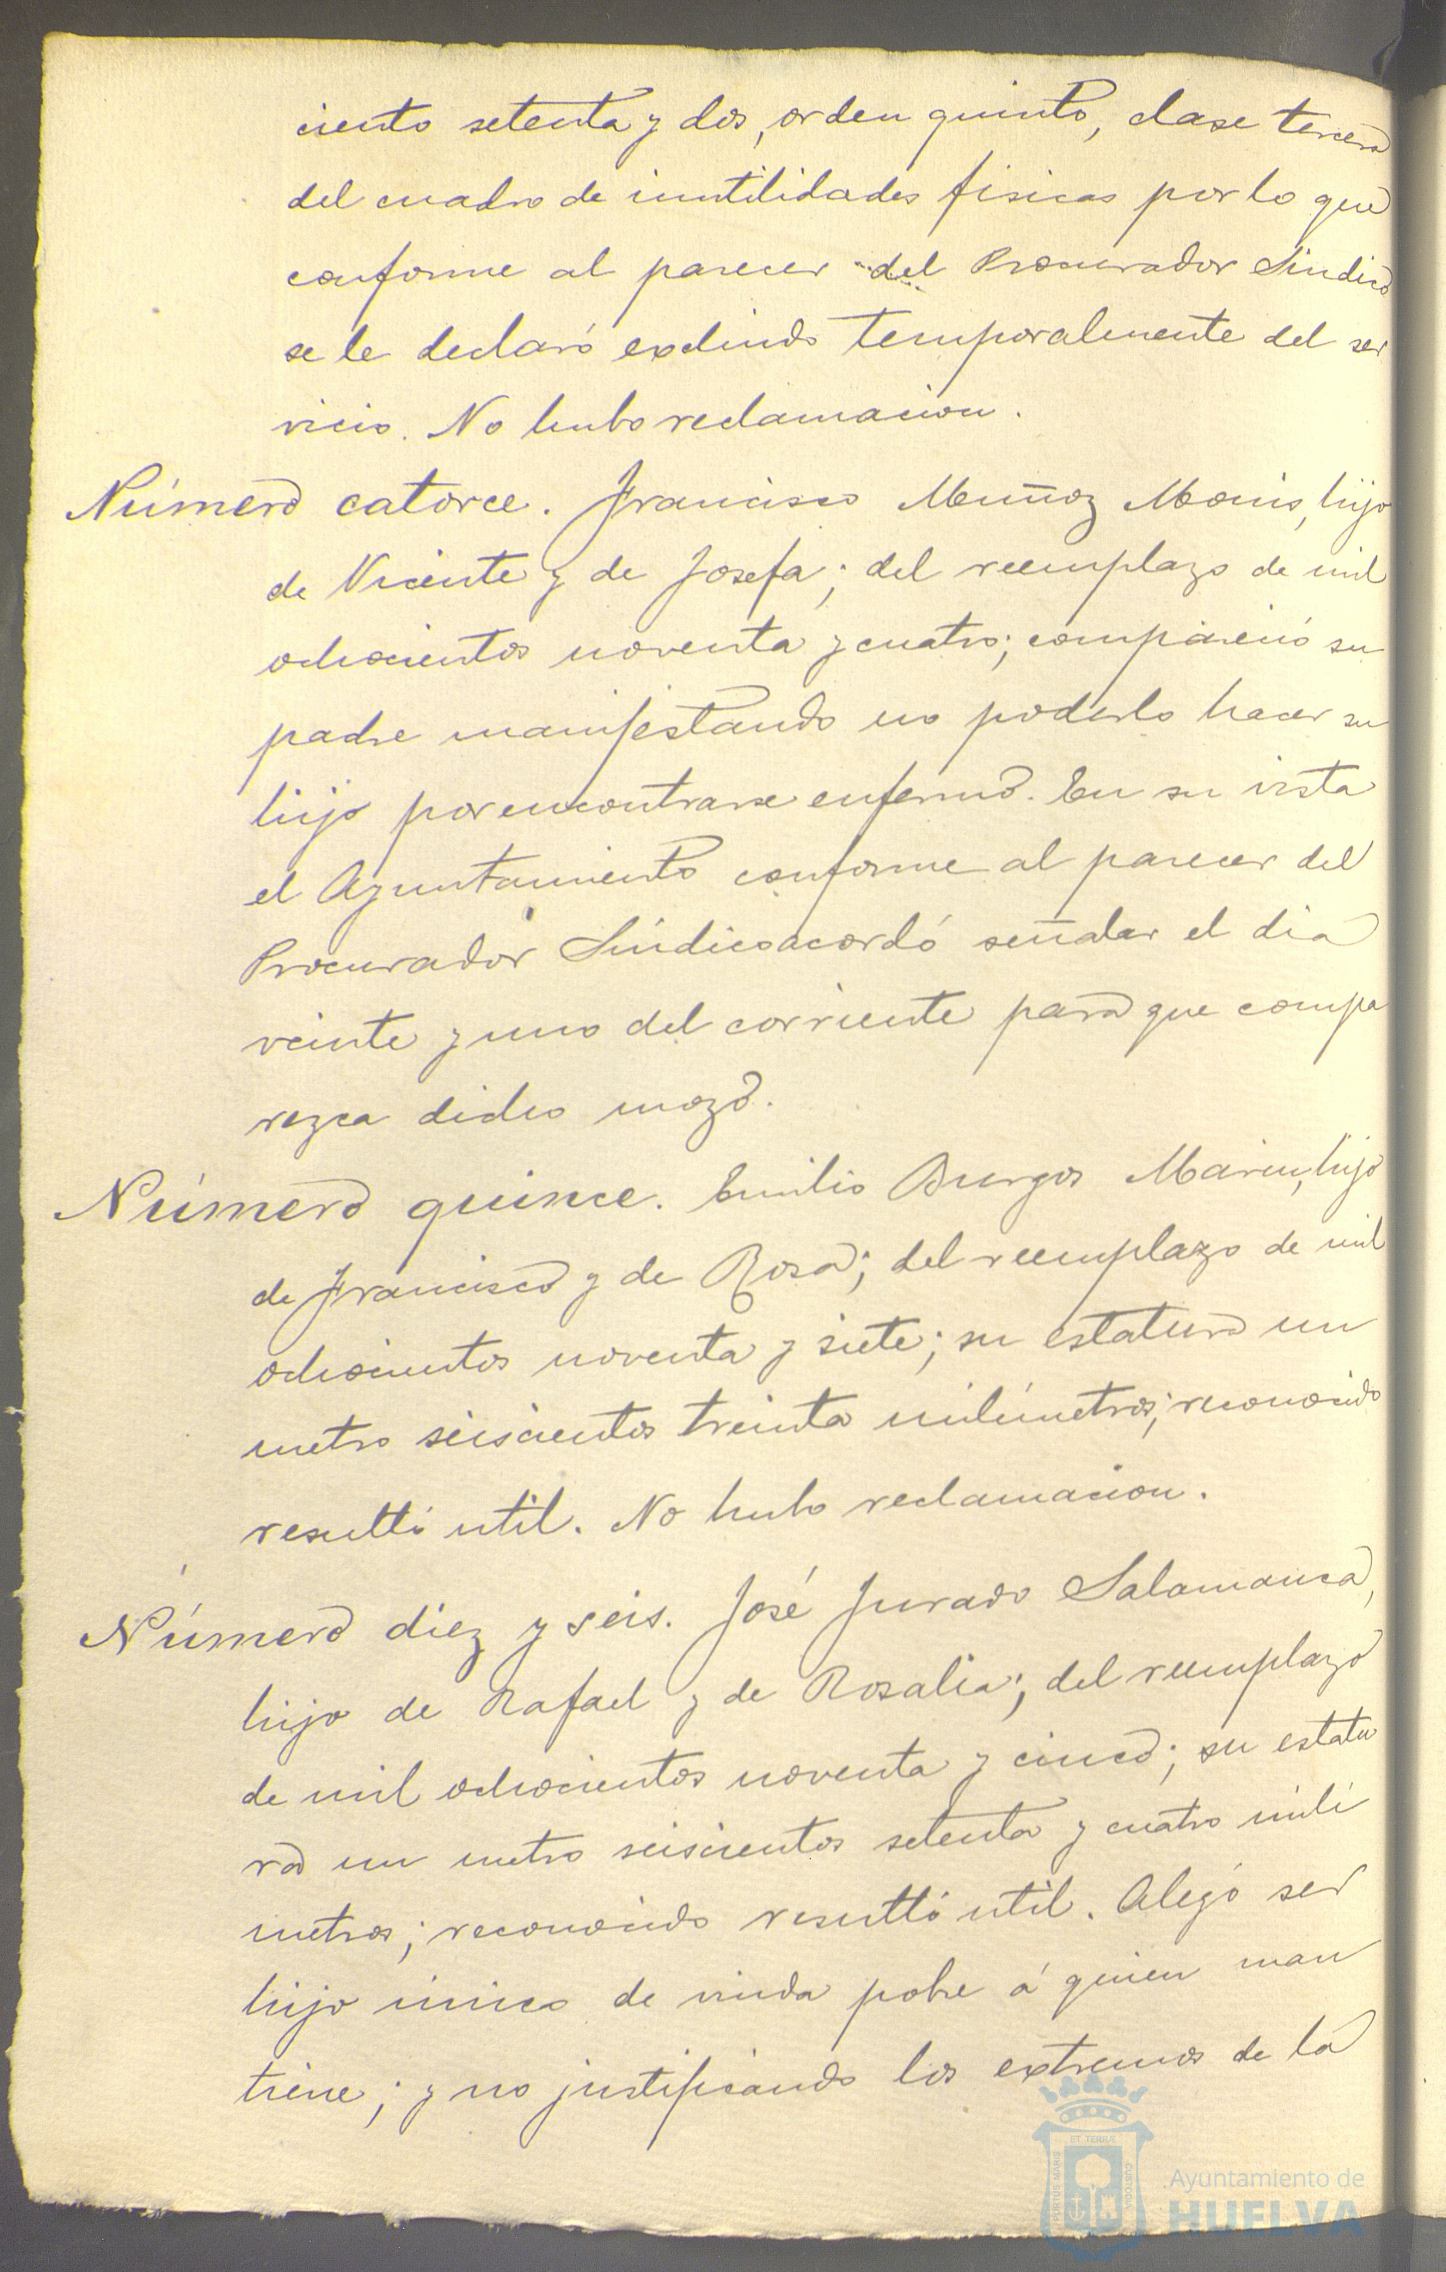 ciento setenta y dos, orden quinto, clase tercera
del cuadro de inutilidades fisicas por lo que
conforme al parecer del Procurador Sindico
se le declaró excluido temporalmente del ser
vicio. No hubo reclamacion.
Número catorce. Francisco Muñoz Monis, hijo
de Vicente y de Josefa; del reemplazo de mil
ochocientos noventa y cuatro; compareció su
padre manifestando no poderlo hacer su
hijo por encontrarse enfermo. En su vista
el Ayuntamiento conforme al parecer del
Procurador Síndico acordó señalar el dia
veinte y uno del corriente para que compa
rezca dicho mozo.
Número quince. Emilio Burgos Marin, hijo
de Francisco y de Rosa; del reemplazo de mil
ochocientos noventa y siete; su estatura un
metro seiscientos treinta milímetros; reconocido
resultó util. No hubo reclamacion.
Número diez y seis. José Jurado Salamanca,
hijo de Rafael y de Rosalia; del reemplazo
de mil ochocientos noventa y cinco; su estatu
ra un metro seiscientos setenta y cuatro mili
metros; reconocido resultó util. Alegó ser
hijo único de viuda pobre á quien man
tiene; y no justificando los extremos de la
Ayuntamiento de
HUELVA